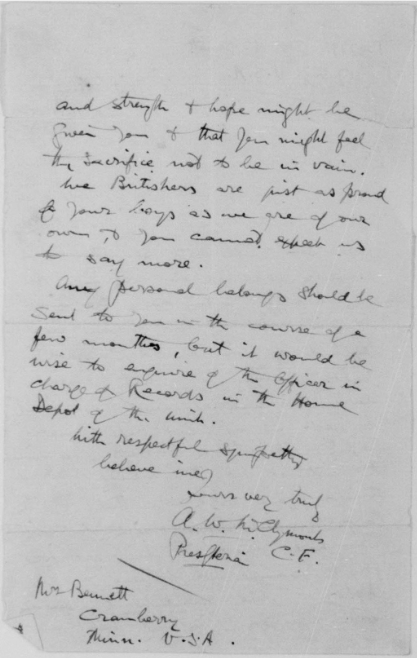 and strength & hope might be
given you & that you might feel
the sacrifice not to be in vain.
We Britishers are just as proud
of your boys as we are of our
own, & you cannot expect us
to say more.
Any personal belongs should be
sent to you in the course of a
few months, but it would be
wise to enquire of the Officer in
charge of Records in the Home
Depot of the Unit.
With respectful sympathy
believe me,
yours very truly
A. W.
C.F.
Mrs Bennett
Cranberry
Minn. U.S.A.